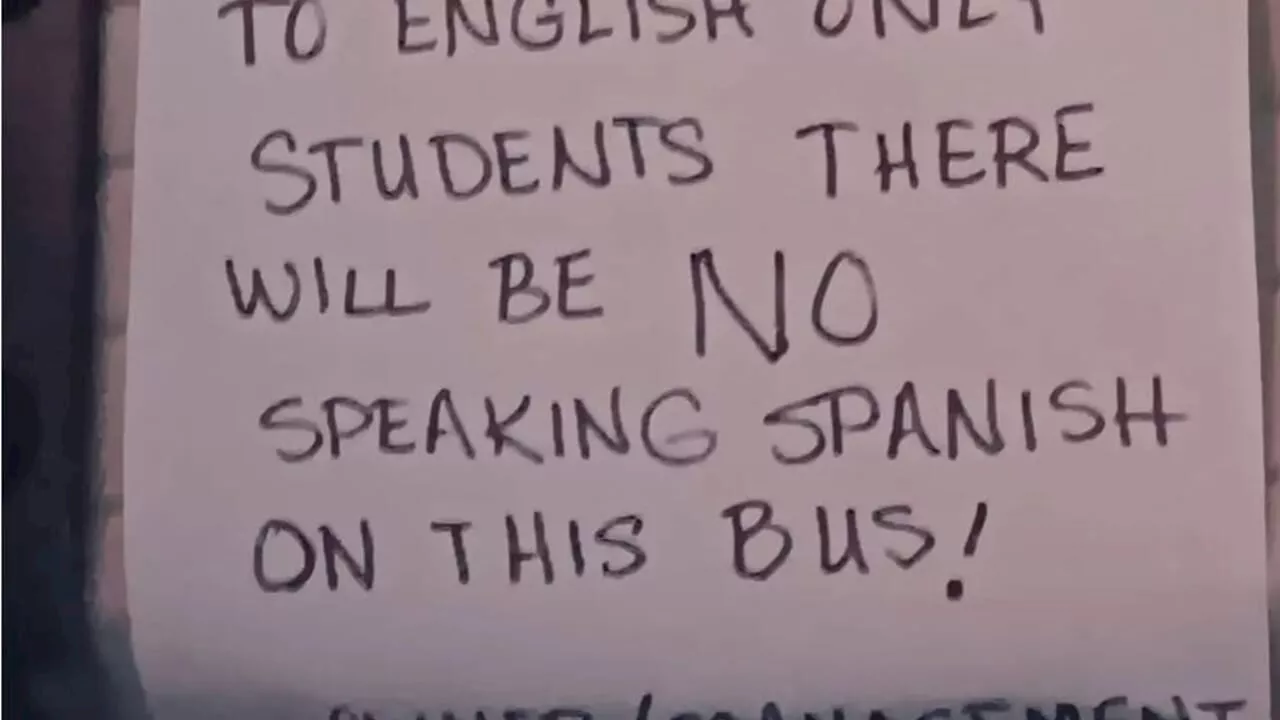 TO ENGLISH ONLY
STUDENTS THERE
WILL BE NO
SPEAKING SPANISH
ON THIS BUS!